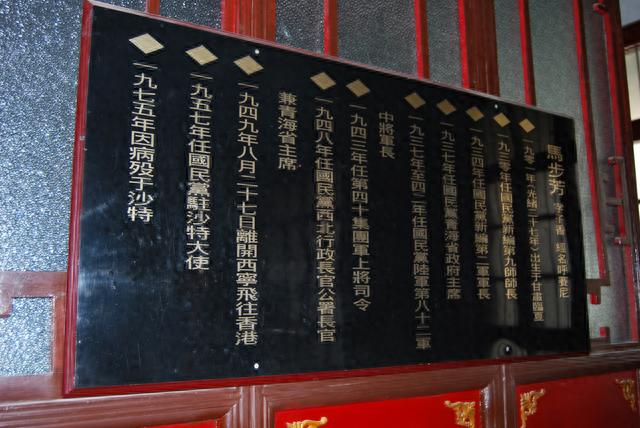 馬步芳 字子香 經名呼賽尼
一九零二年（光緒二十七年）出生于甘肅臨夏
任國民黨新編第九師師長
一九三四年任國民黨新編第二軍軍長
一九三七年任國民黨青海省政府主席
一九三七年至四二年任國民黨陸軍第八十二軍
中將軍長
一九四三年任第四十集團軍上將司令
一九四八年任國民黨西北行政長官公署長官
兼青海省主席
一九四九年八月二十七日離開西寧飛往香港
一九五七年任國民黨駐沙特大使
一九七五年因病殁于沙特